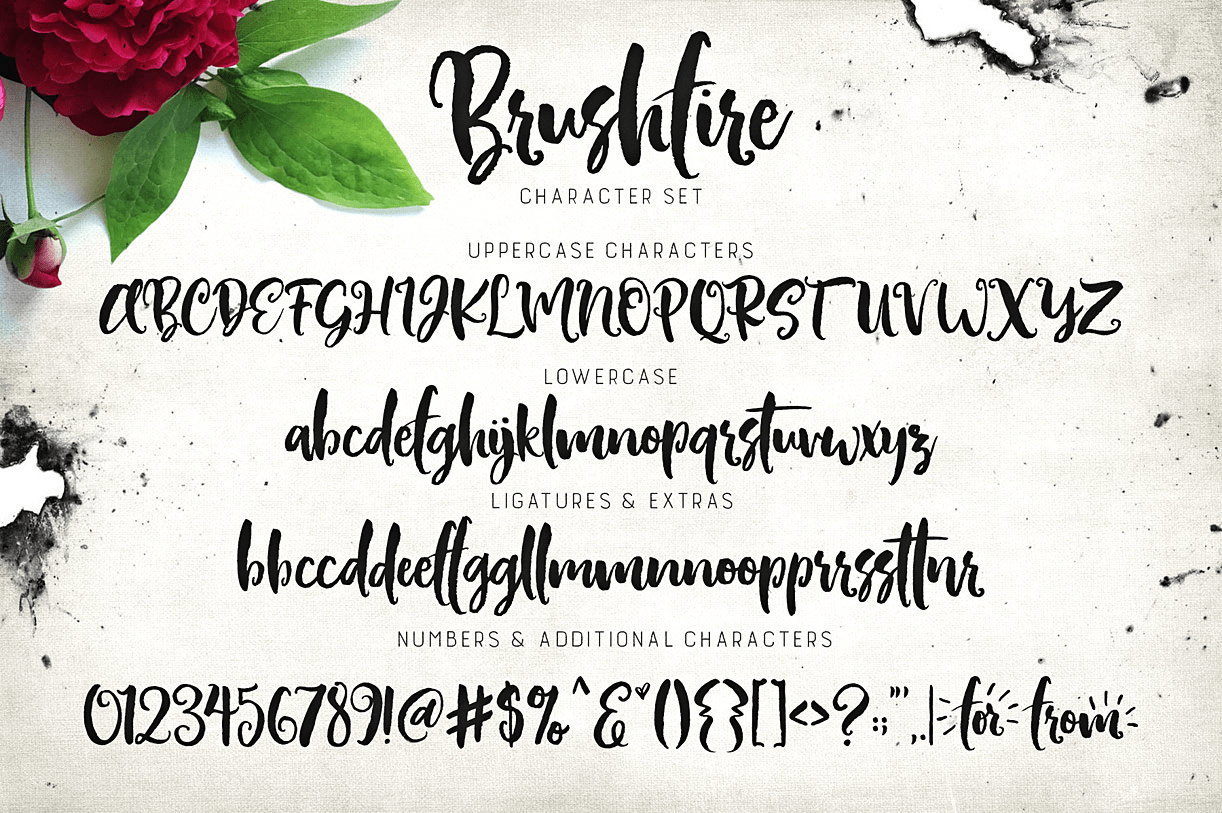 Brushfire
CHARACTER SET
UPPERCASE CHARACTERS
ABCDEFGHIJKLMNOPQRSTUVWXYZ
LOWERCASE
abcdefghijklmnopqrstuvwxyz
LIGATURES & EXTRAS
bbccddeeffggllmmmnnnooppprrrsssttnr
NUMBERS & ADDITIONAL CHARACTERS
0123456789!@#$%^&(){}[]<>?:;"',.| for from